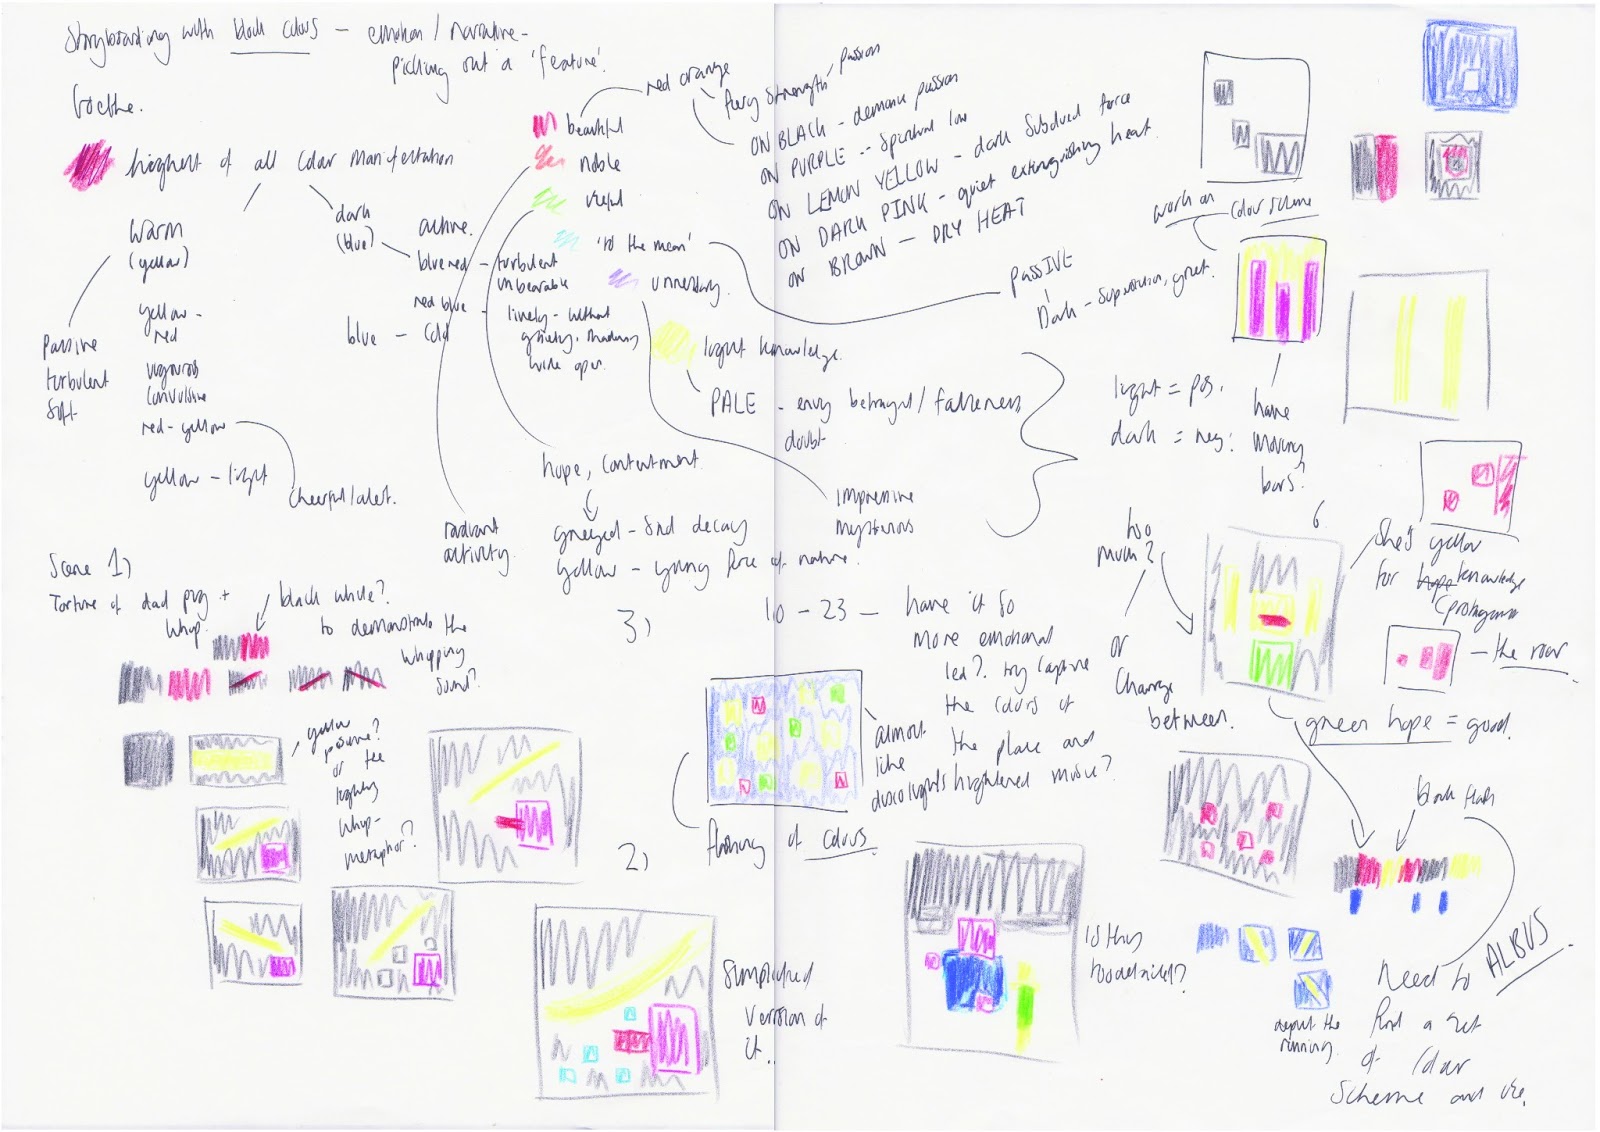 Storyboarding with block colours – emotion / narrative –
picking out a 'feature'.
Goethe.
highest of all colour manifestation
warm
(yellow)
yellow –
red
vigorous
convulsive
red – yellow
yellow – light
cheerful/alert.
passive
turbulent
soft
dark
(blue)
active.
blue red – turbulent
unbearable
red blue – lively – without
gaiety.
wide open
blue – cold
beautiful
noble
useful
'to the mean'
unnecessary.
red orange
fiery strength
passion
ON BLACK – demonic passion
ON PURPLE –
ON LEMON YELLOW – dark subdued force
ON DARK PINK – quiet extinguishing heat.
ON BROWN – DRY HEAT
PASSIVE
Dark – superstition, grief.
light knowledge.
PALE – envy betrayal / falseness
doubt
hope, contentment.
greeyed – and decay
yellow – young force of nature.
radiant
activity.
impressive
mysterious
work on
colour scheme
light = pos.
dark = neg.
have
moving
bars?
Scene 1)
Torture of dad pig +
whip.
black white?
to demonstrate the
whipping
sound?
yellow
positive?
or the
lighting
whip –
metaphor?
3)
10 – 23 – have it so
more emotional
led? try capture
the colours of
the place and
heightened music?
almost
like
discolights
flashing of colours.
2)
Simplified
version of
it.
is this
too detailed?
too
much?
or
change
between.
6
She's yellow
for hope knowledge
(protagonist
– the roar
green hope = good.
black flash
depict the
running.
Need to
find a set
of colour
scheme and use.
ALBUS.